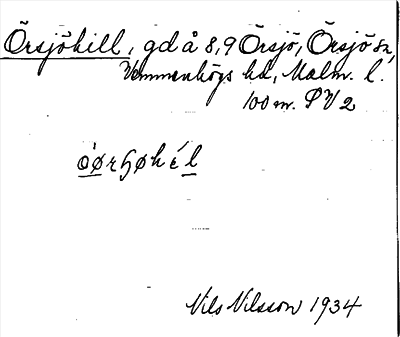 Örsjökill, gd å 8,9 Örsjö, Örsjö sn,
Vemmenhögs hd, Malm. l.
100 m. SV 2
óørhøkél
Nils Nilsson 1934